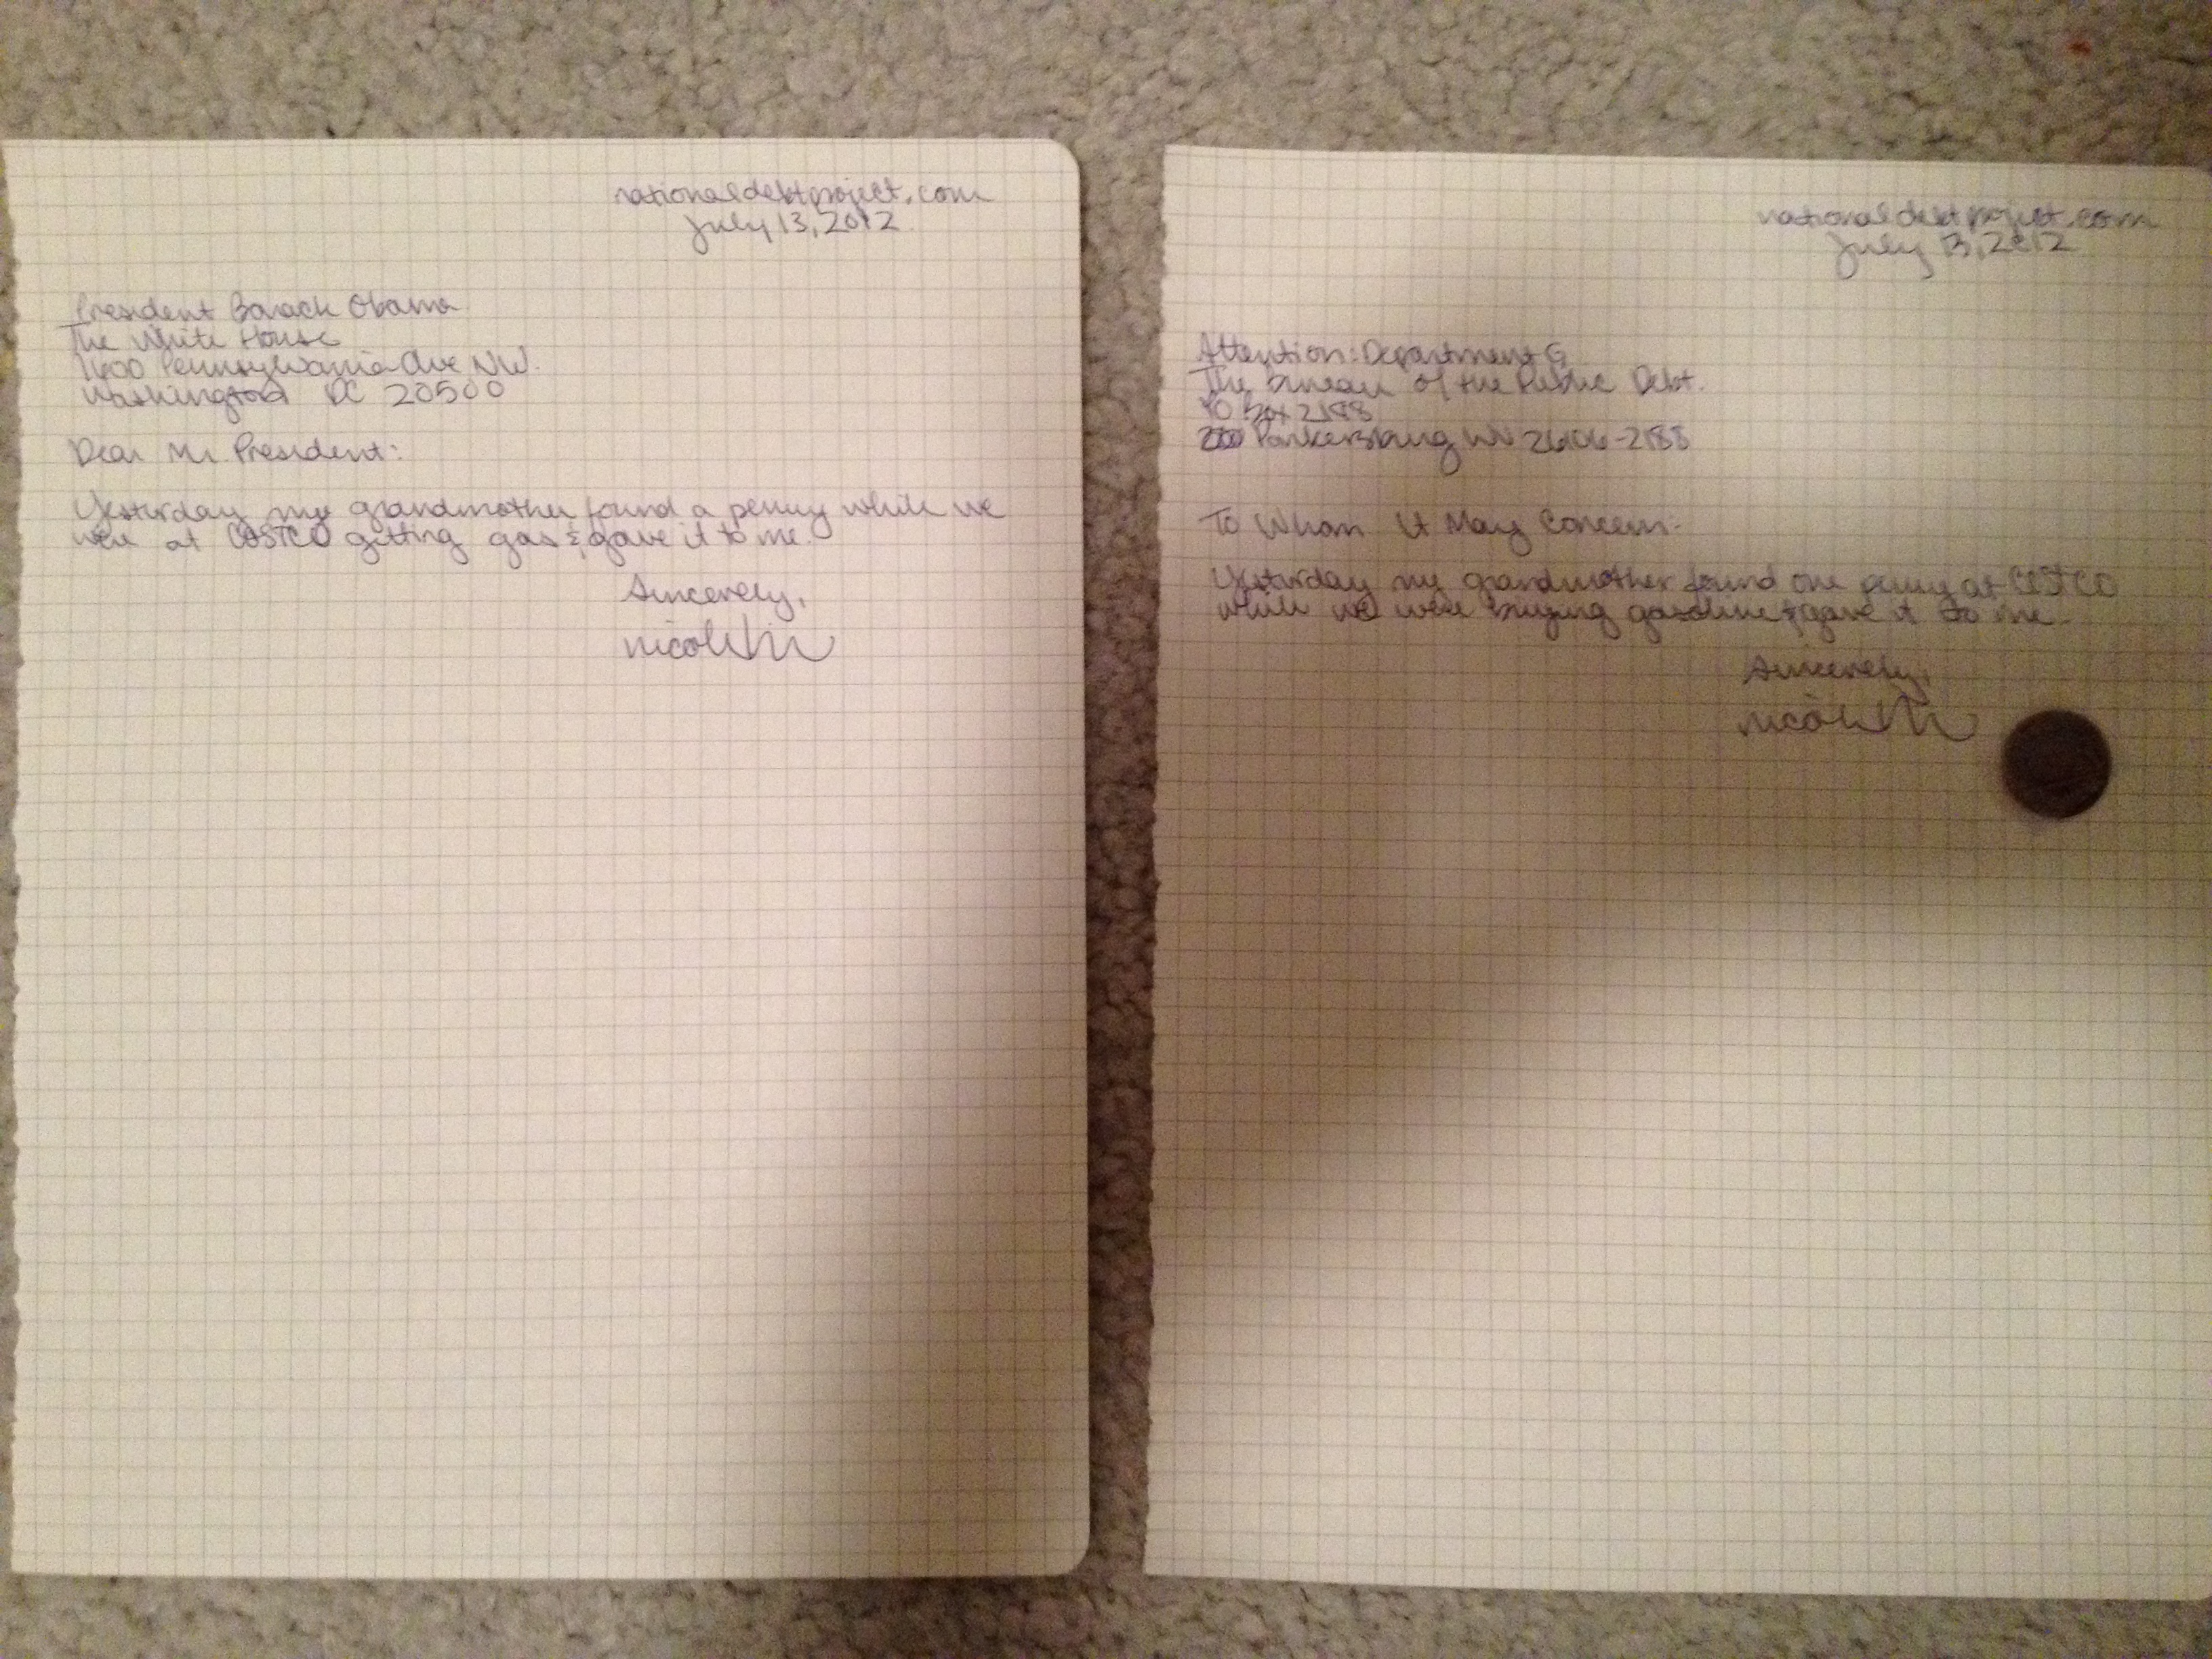 nationaldebtproject.com
July 13, 2012
President Barack Obama
The White House
1600 Pennsylvania Ave NW.
Washington DC 20500
Dear Mr. President:
Yesterday my grandmother found a penny while we
were at COSTCO getting gas & gave it to me.
Sincerely,
nationaldebtproject.com
July 13, 2012
Attention: Department G
The Bureau of the Public Debt.
PO Box 2188
Parkersburg WV 26106-2188
To Whom It May Concern:
Yesterday my grandmother found one penny at COSTCO
while we were buying gasoline & gave it to me.
Sincerely,